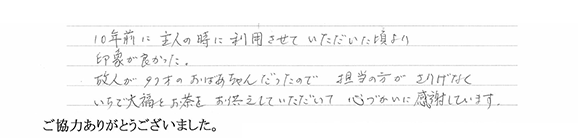 10年前に主人の時に利用させていただいた頃より
印象が良かった。
故人が97才のおばあちゃんだったので 担当の方がさりげなく
いちご大福とお茶をお供えしていただいて 心づかいに感謝しています。
ご協力ありがとうございました。